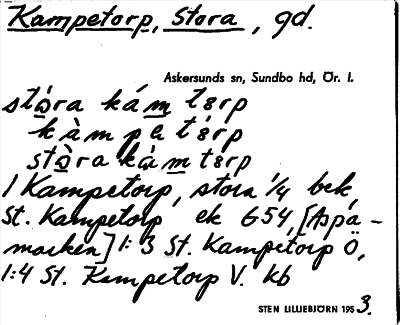 Kampetorp, Stora, gd.
Askersunds sn, Sundbo hd, Ör. l.
stóra kám tɛrp
kàm pɛ tɛ́rp
stòra kàm tɛrp
1 Kampetorp, stora 1/4 bek,
St. Kampetorp ek 654, [Aspa-
marken] 1:3 St. Kampetorp Ö,
1:4 St. Kampetorp V. kb
STEN LILLIEBJÖRN 1953.